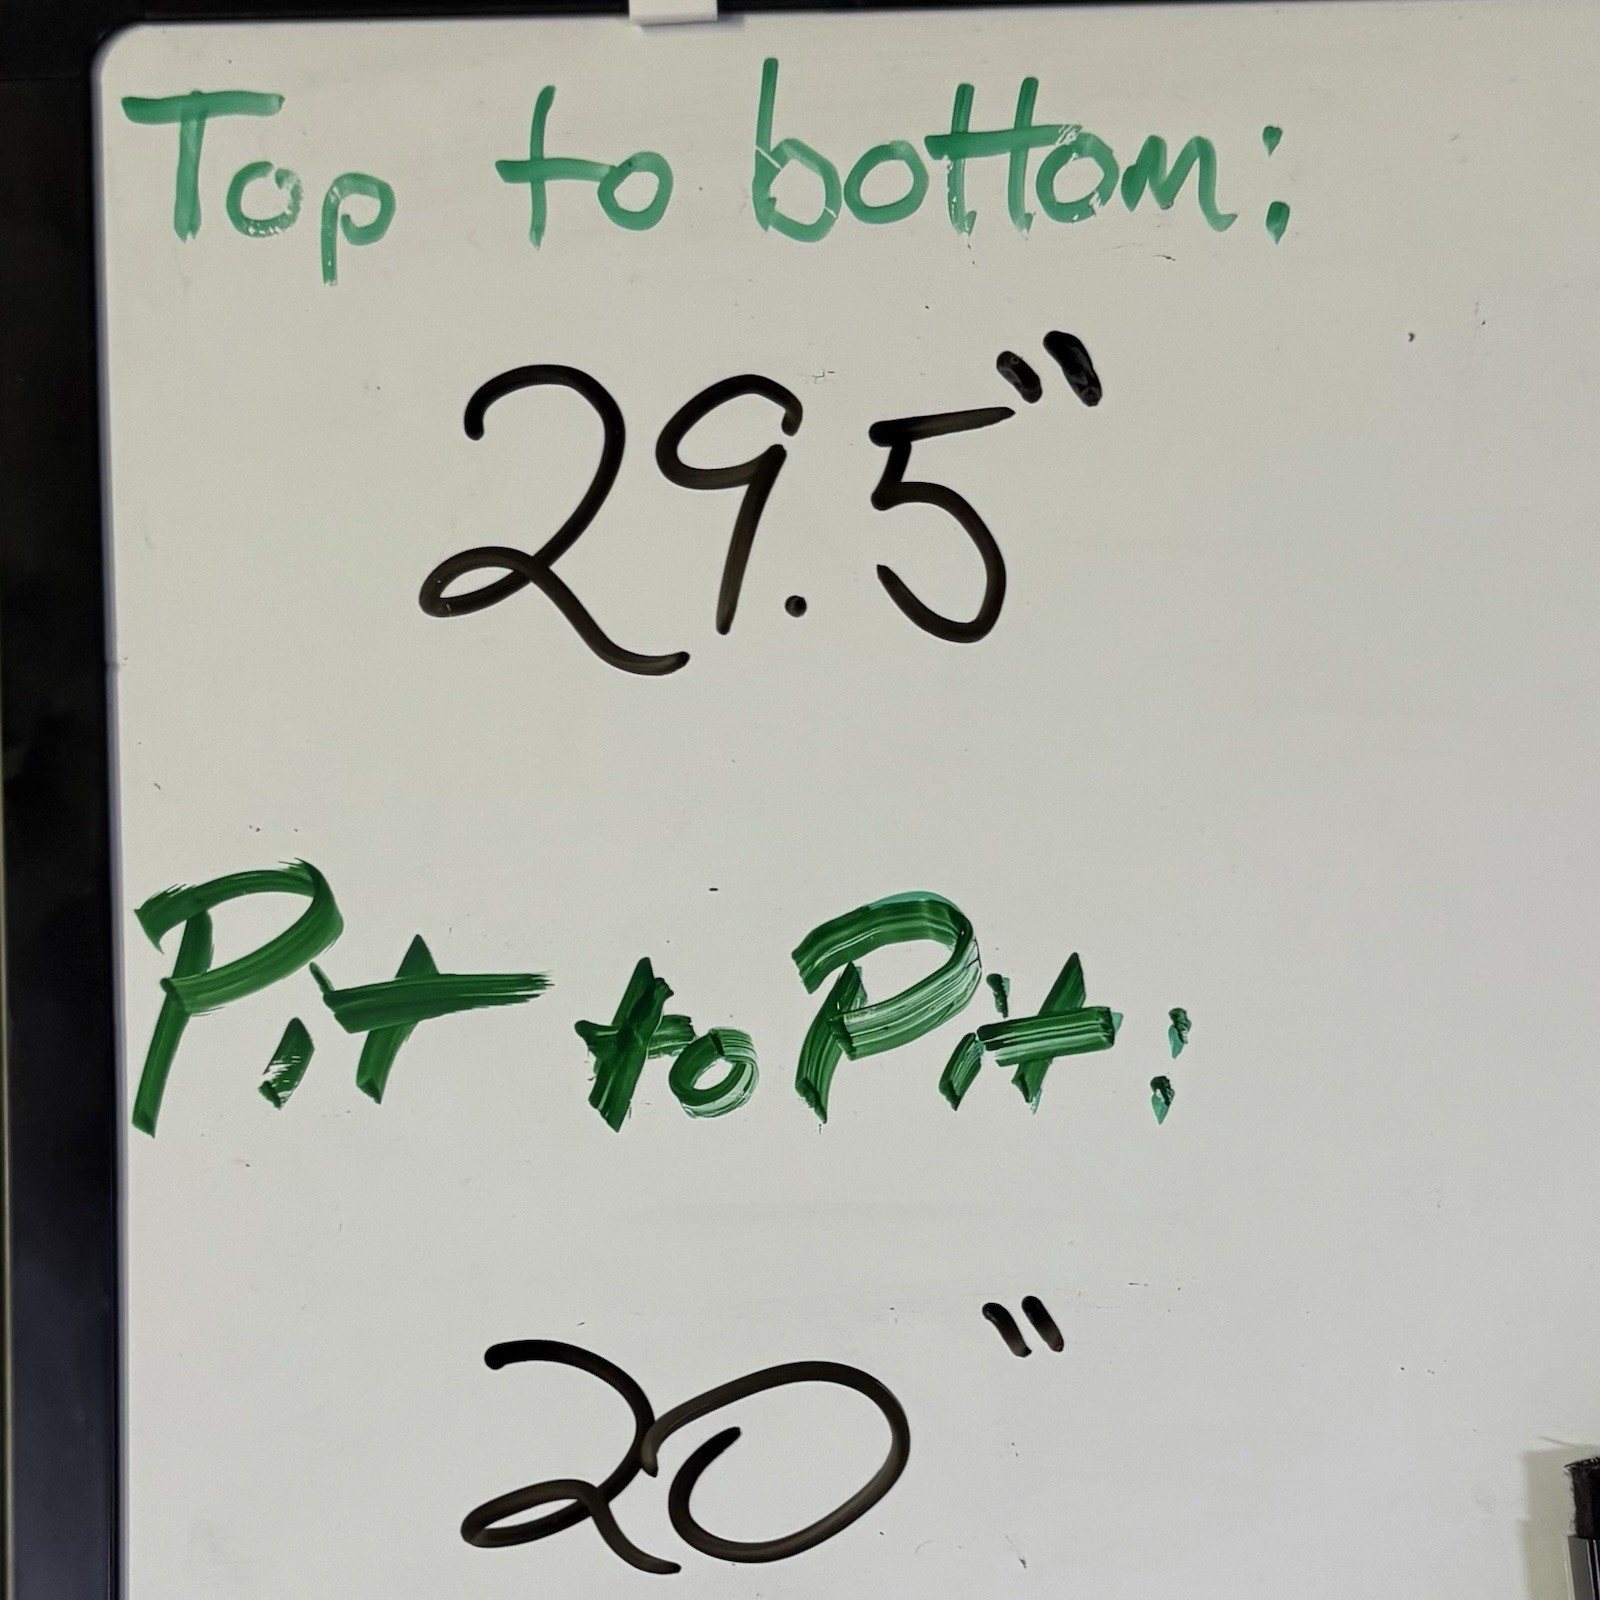 Top to bottom:
29.5"
Pit to Pit:
20"